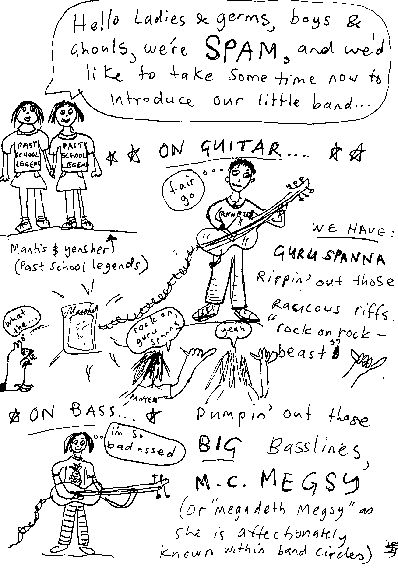 Hello Ladies & germs, boys &
ghouls, we're SPAM, and we'd
like to take some time now to
introduce our little band...
PAST SCHOOL LEGEND
PAST SCHOOL LEGEND
Mantis & yensher
(Past School legends)
☆☆ ON GUITAR.... ☆☆
fair go
WE HAVE:
GURU SPANNA
Rippin' out those
Raucous riffs.
"rock on rock-
beast"
what the...
rock on guru
yeah
☆ ON BASS... ☆
Pumpin' out those
BIG Basslines,
M.C. MEGSY
(or "megadeth Megsy" as
she is affectionately
known within band circles)
i'm so badassed